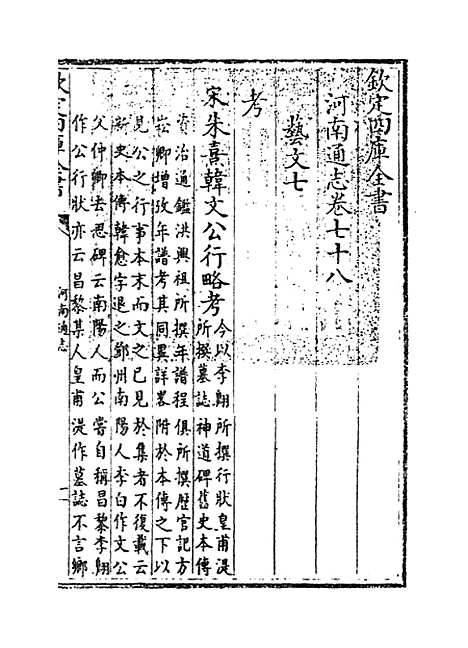 欽定四庫全書
河南通志卷七十八
藝文七
考
宋朱熹韓文公行略考今以李翺所撰行狀皇甫湜
所撰墓誌神道碑舊史本傳
資治通鑑洪興祖所撰年譜程俱所撰歷官記方
崧卿增攷年譜考其同異詳畧附於本傳之下以
見公之行事本末而文之已見於集者不復載云
新史本傳韓愈字退之鄧州南陽人李白作文公
父仲卿去思碑云南陽人而公嘗自稱昌黎李翺
作公行狀亦云昌黎某人皇甫湜作墓誌不言鄉
欽定四庫全書
河南通志
一